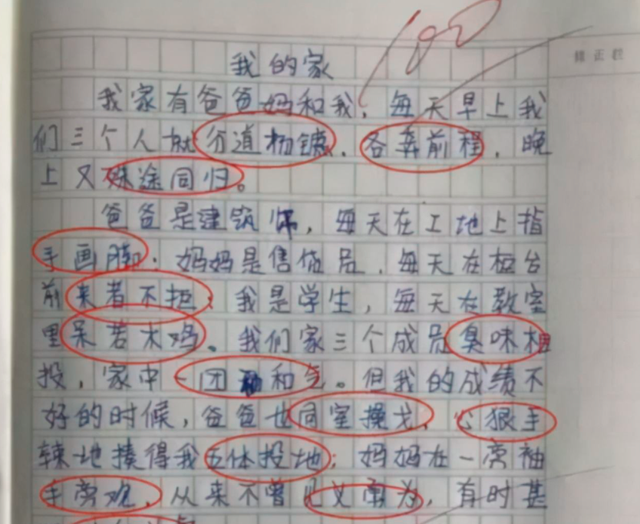 100
订正栏
我的家
我家有爸爸妈和我，每天早上我
们三个人就分道扬镳、各奔前程，晚
上又殊途同归。
爸爸是建筑师，每天在工地上指
手画脚；妈妈是售货员，每天在柜台
前来者不拒；我是学生，每天在教室
里呆若木鸡。我们家三个成员臭味相
投，家中一团和气。但我的成绩不
好的时候，爸爸也同室操戈，心狠手
辣地揍得我五体投地；妈妈在一旁袖
手旁观，从来不曾见义勇为，有时甚